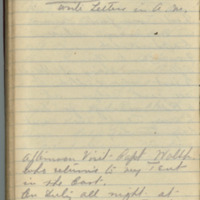 Write Letters in A. M.
Afternoon Visit Capt
who returns to my Tent
in the East.
On all night. at